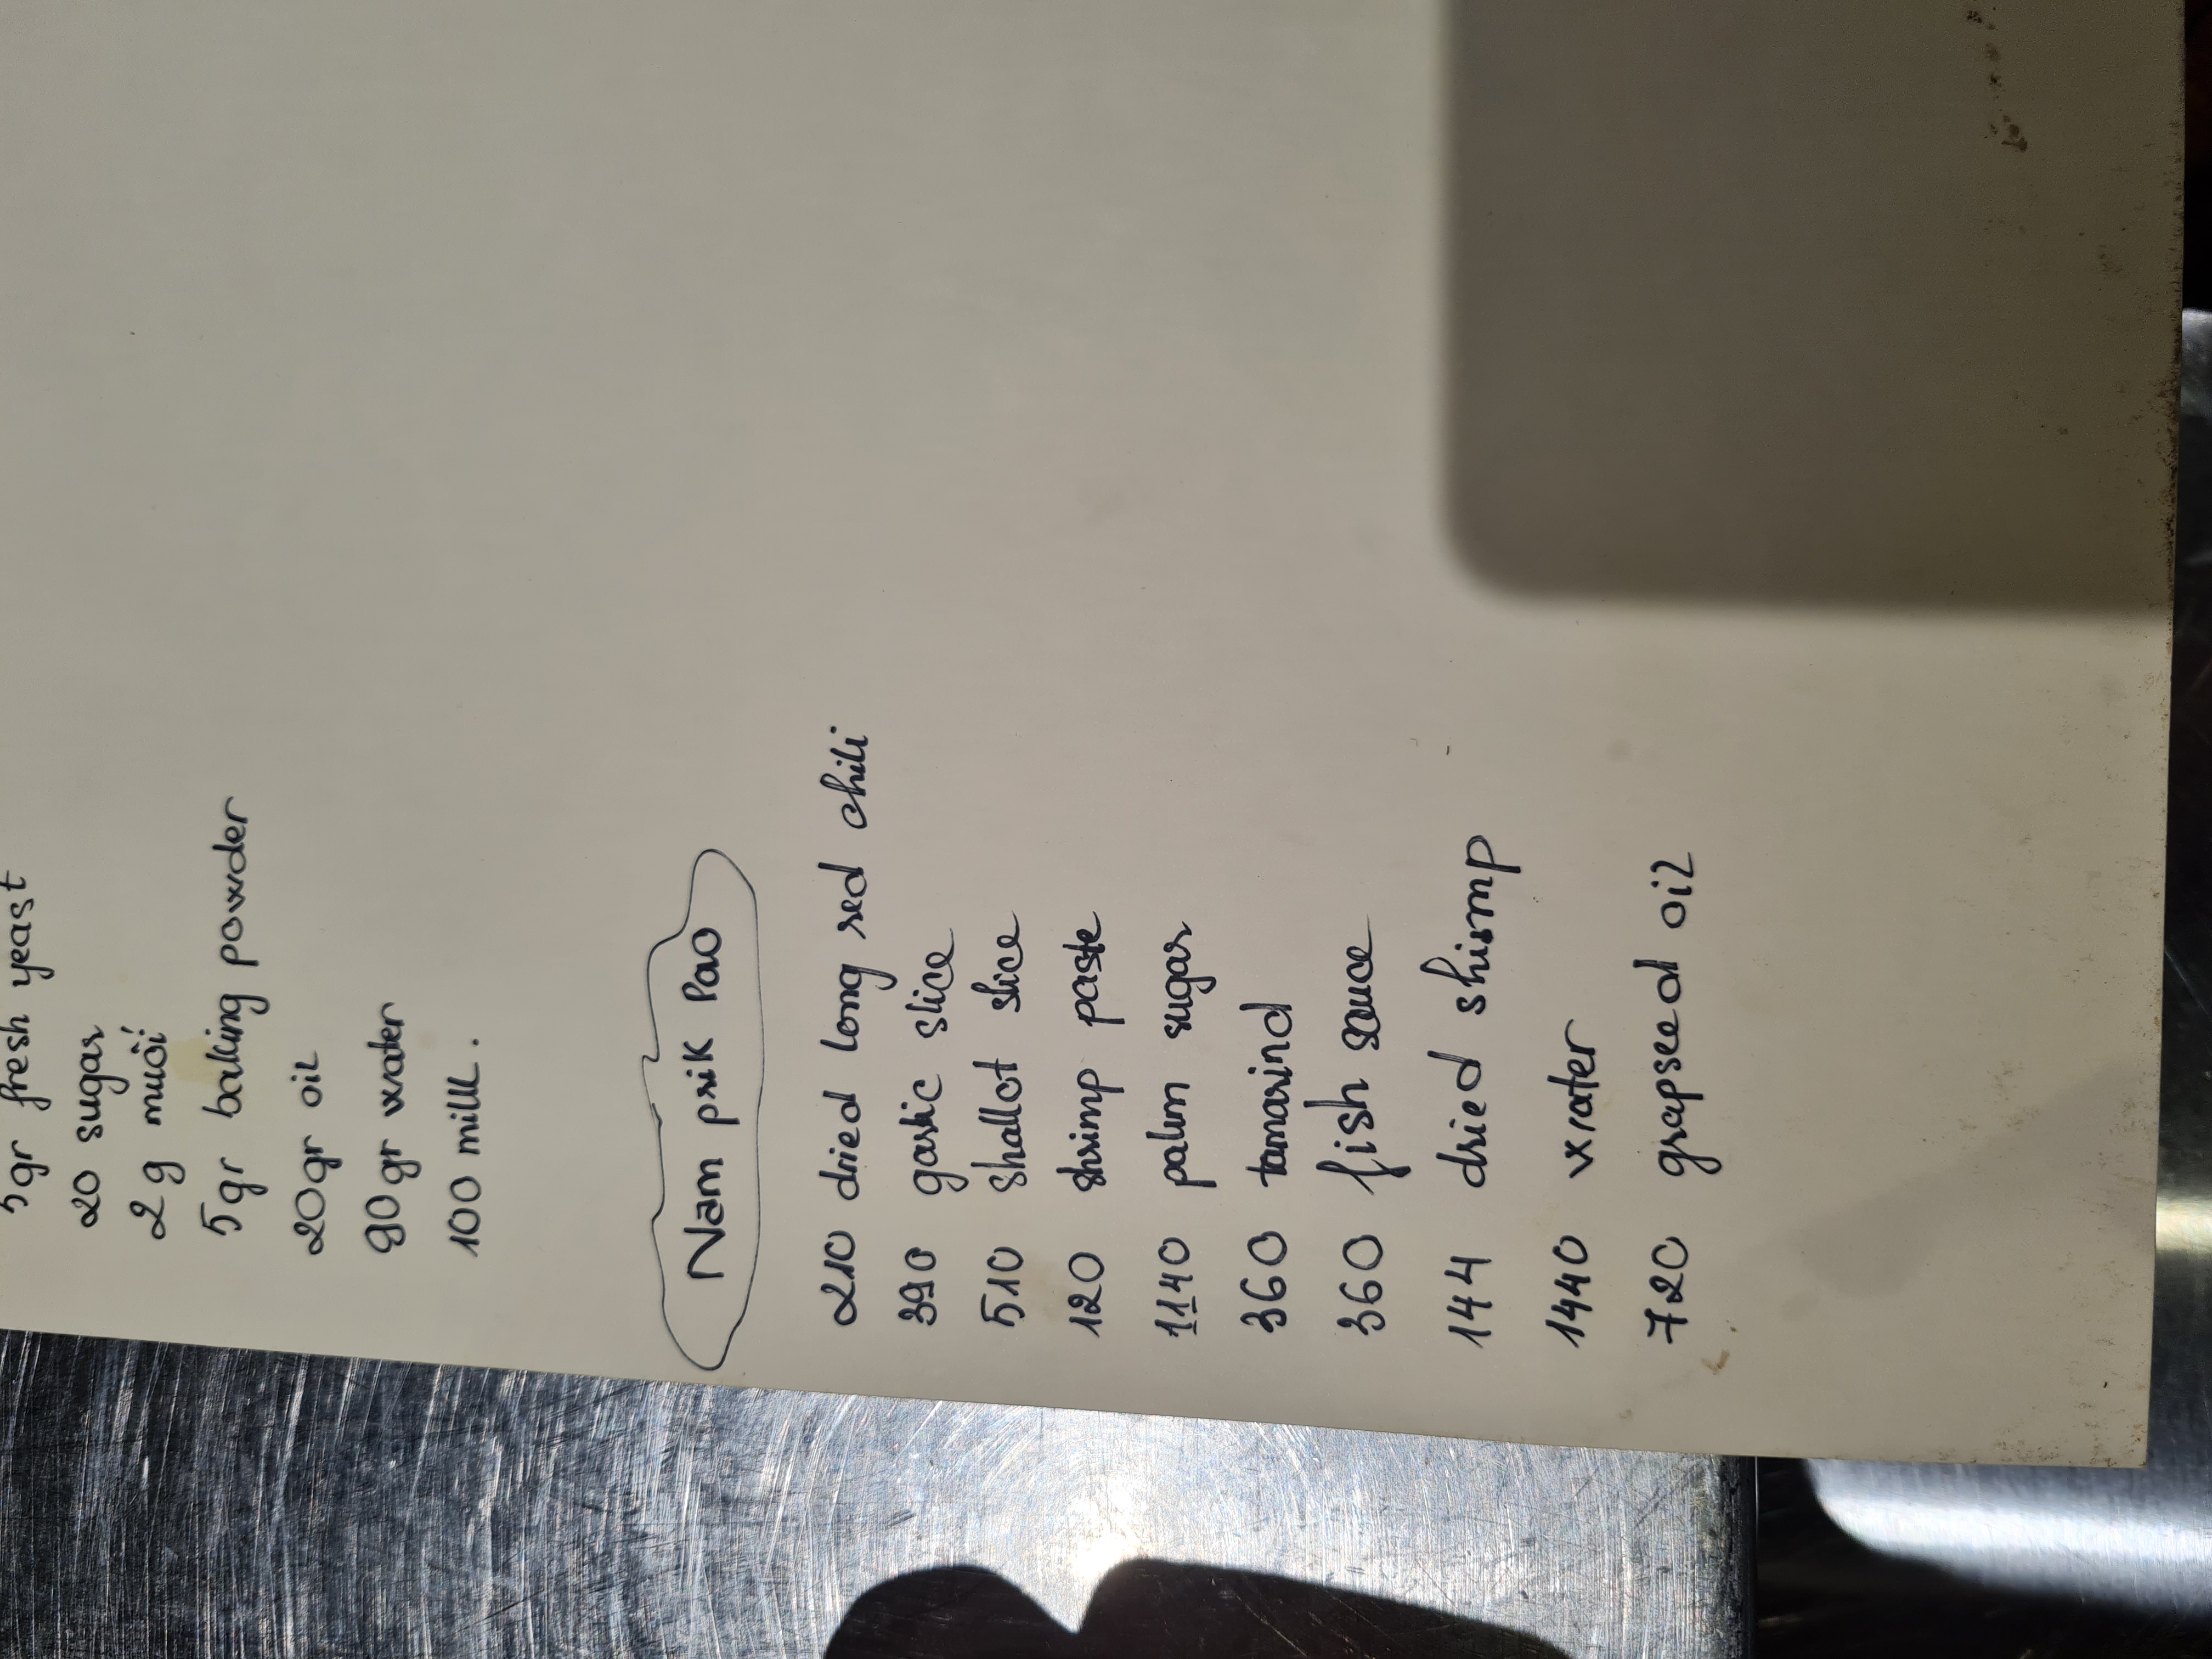 5gr fresh yeast
20 sugar
2 g muối
5gr baking powder
20gr oil
90gr water
100 milk.
Nam prik Pao
210 dried long red chili
390 garlic slice
510 shallot slice
120 shrimp paste
1140 palm sugar
360 tamarind
360 fish sauce
144 dried shrimp
1440 water
720 grapseed oil